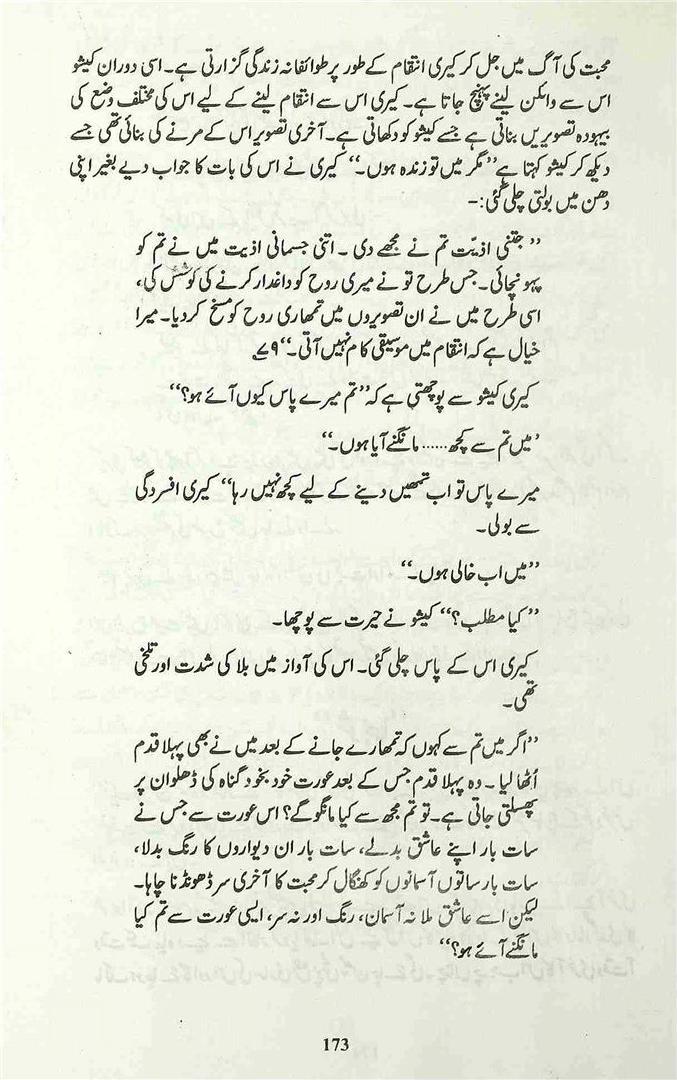 محبت کی آگ میں جل کر کیری انتقام کے طور پر طوائفانہ زندگی گزارتی ہے۔ اسی دوران کیشو
اس سے وائلن لینے پہنچ جاتا ہے۔ کیری اس سے انتقام لینے کے لیے اس کی مختلف وضع کی
بیہودہ تصویریں بناتی ہے جسے کیشو کو دکھاتی ہے۔ آخری تصویر اس کے مرنے کی بنائی تھی جسے
دیکھ کر کیشو کہتا ہے ’’مگر میں تو زندہ ہوں۔‘‘ کیری نے اس کی بات کا جواب دیے بغیر اپنی
دھن میں بولتی چلی گئی:-
’’جتنی اذیّت تم نے مجھے دی ۔ اتنی جسمانی اذیت میں نے تم کو
پہونچائی۔ جس طرح تو نے میری روح کو داغدار کرنے کی کوشش کی،
اسی طرح میں نے ان تصویروں میں تمھاری روح کو مسخ کر دیا۔ میرا
خیال ہے کہ انتقام میں موسیقی کام نہیں آتی۔‘‘۷۹؎
کیری کیشو سے پوچھتی ہے کہ ’’تم میرے پاس کیوں آئے ہو؟‘‘
’میں تم سے کچھ...... مانگنے آیا ہوں۔‘‘
میرے پاس تو اب تمھیں دینے کے لیے کچھ نہیں رہا‘‘ کیری افسردگی
سے بولی۔
’’میں اب خالی ہوں۔‘‘
’’کیا مطلب؟‘‘ کیشو نے حیرت سے پوچھا۔
کیری اس کے پاس چلی گئی۔ اس کی آواز میں بلا کی شدت اور تلخی
تھی۔
’’اگر میں تم سے کہوں کہ تمھارے جانے کے بعد میں نے بھی پہلا قدم
اُٹھا لیا ۔ وہ پہلا قدم جس کے بعد عورت خود بخود گناہ کی ڈھلوان پر
پھسلتی جاتی ہے۔ تو تم مجھ سے کیا مانگو گے؟ اس عورت سے جس نے
سات بار اپنے عاشق بدلے، سات بار ان دیواروں کا رنگ بدلا،
سات بار ساتوں آسمانوں کو کھنگال کر محبت کا آخری سر ڈھونڈنا چاہا۔
لیکن اسے عاشق ملا نہ آسمان، رنگ اور نہ سر، ایسی عورت سے تم کیا
مانگنے آئے ہو؟‘‘
173